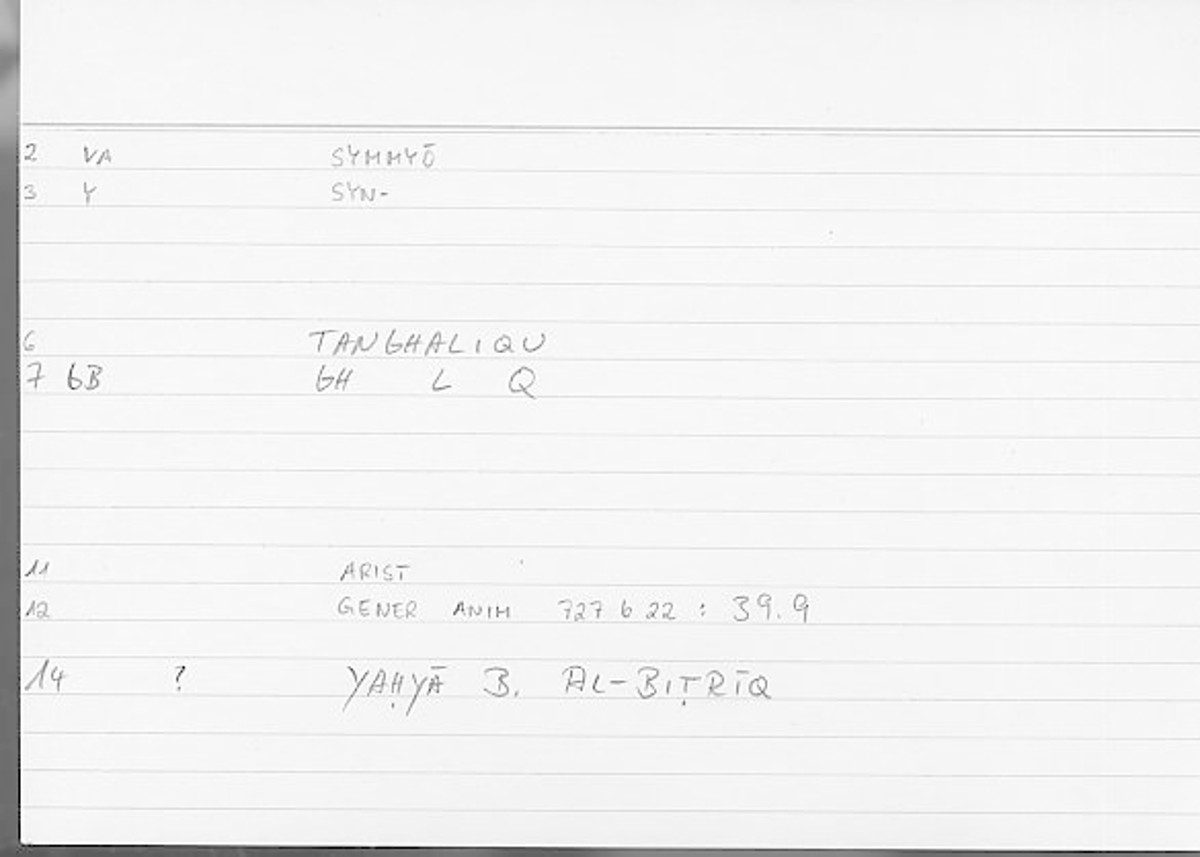 2 VA SYMMYŌ
3 Y SYN-
6 TANGHALIQU
7 6B GH L Q
11 ARIST
12 GENER ANIM 727 b 22 : 39.9
14 ? YAḤYĀ B. AL-BIṬRĪQ